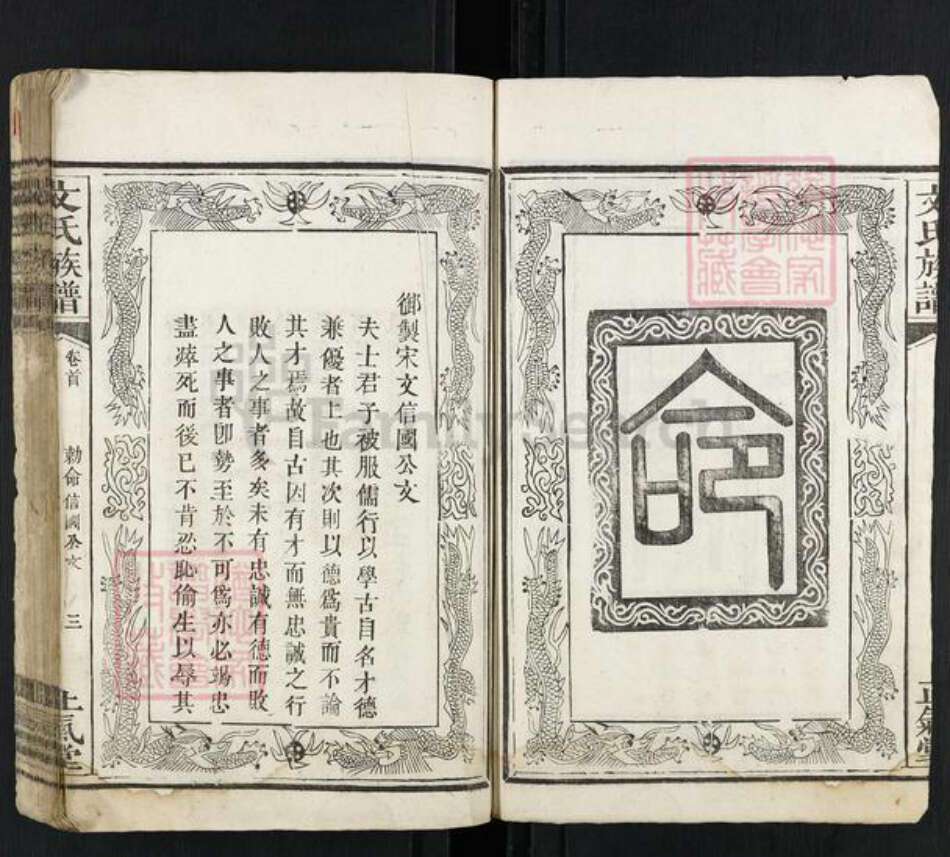 命
文氏族譜
正氣堂
御製宋文信國公文
夫士君子被服儒行以學古自名才德
兼優者上也其次則以德爲貴而不論
其才焉故自古因有才而無忠誠之行
敗人之事者多矣未有忠誠有德而敗
人之事者卽勢至於不可爲亦必竭忠
盡瘁死而後已不肯忍恥偷生以辱其
文氏族譜
卷首
勅命信國公文
三
正氣堂